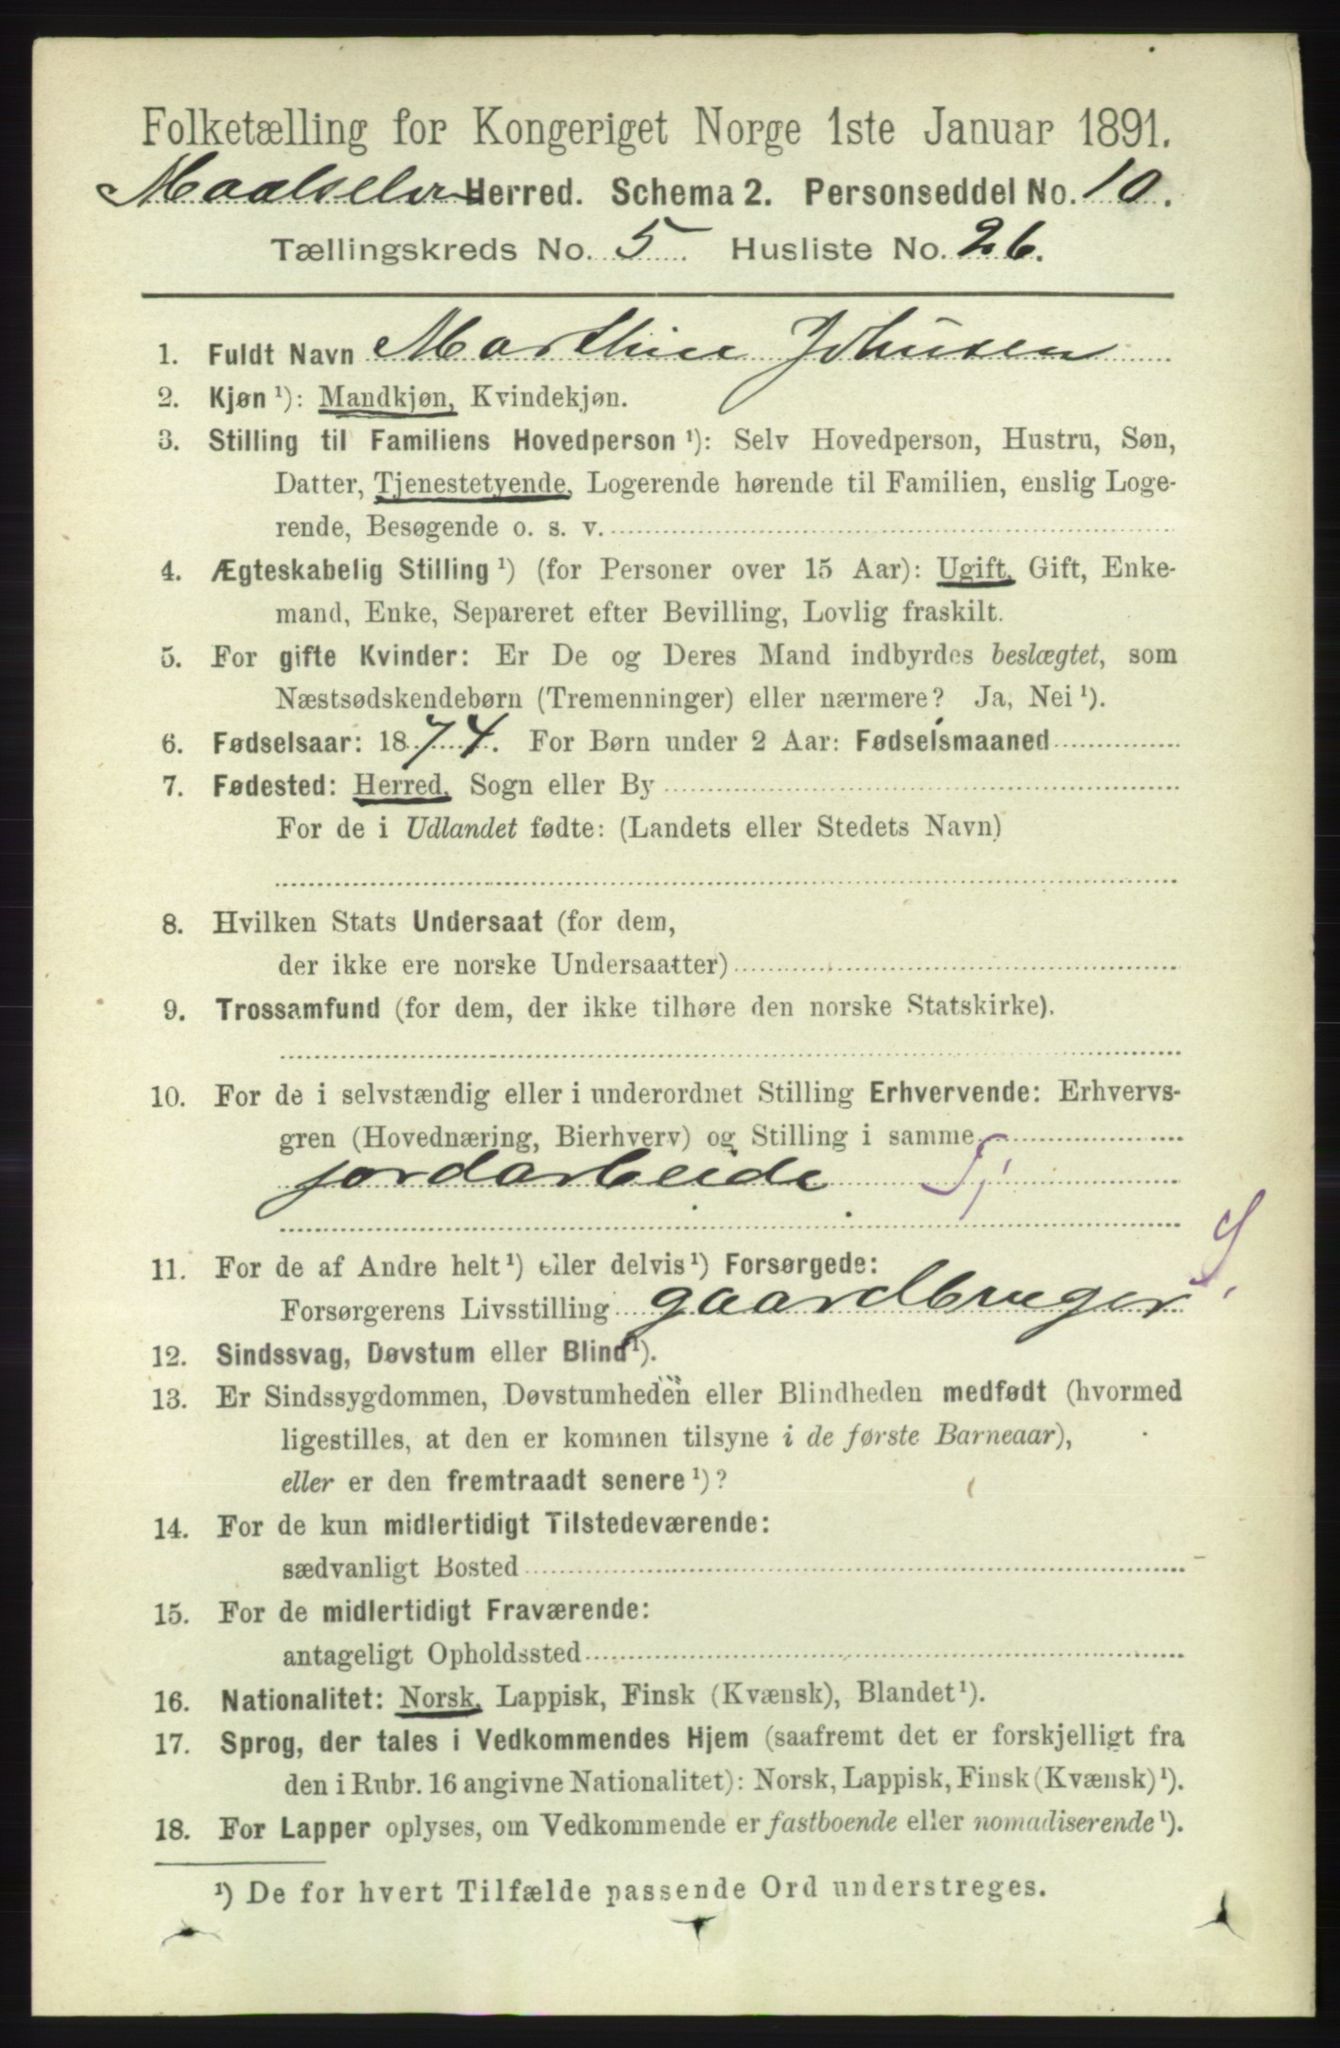 Folketælling for Kongeriget Norge 1ste Januar 1891.
Maalselv Herred. Schema 2. Personseddel No. 10.
Tællingskreds No. 5 Husliste No. 26.
1. Fuldt Navn Marthin Johnsen
2. Kjøn ¹): Mandkjøn, Kvindekjøn.
3. Stilling til Familiens Hovedperson ¹): Selv Hovedperson, Hustru, Søn,
Datter, Tjenestetyende, Logerende hørende til Familien, enslig Loge-
rende, Besøgende o. s. v.
4. Ægteskabelig Stilling ¹) (for Personer over 15 Aar): Ugift, Gift, Enke-
mand, Enke, Separeret efter Bevilling, Lovlig fraskilt.
5. For gifte Kvinder: Er De og Deres Mand indbyrdes beslægtet, som
Næstsødskendebørn (Tremenninger) eller nærmere? Ja, Nei ¹).
6. Fødselsaar: 1874. For Børn under 2 Aar: Fødselsmaaned
7. Fødested: Herred, Sogn eller By
For de i Udlandet fødte: (Landets eller Stedets Navn)
8. Hvilken Stats Undersaat (for dem,
der ikke ere norske Undersaatter)
9. Trossamfund (for dem, der ikke tilhøre den norske Statskirke).
10. For de i selvstændig eller i underordnet Stilling Erhvervende: Erhvervs-
gren (Hovednæring, Bierhverv) og Stilling i samme
jordarbeide
11. For de af Andre helt ¹) eller delvis ¹) Forsørgede:
Forsørgerens Livsstilling gaardbruger
12. Sindssvag, Døvstum eller Blind ¹).
13. Er Sindssygdommen, Døvstumheden eller Blindheden medfødt (hvormed
ligestilles, at den er kommen tilsyne i de første Barneaar),
eller er den fremtraadt senere ¹)?
14. For de kun midlertidigt Tilstedeværende:
sædvanligt Bosted
15. For de midlertidigt Fraværende:
antageligt Opholdssted
16. Nationalitet: Norsk, Lappisk, Finsk (Kvænsk), Blandet ¹).
17. Sprog, der tales i Vedkommendes Hjem (saafremt det er forskjelligt fra
den i Rubr. 16 angivne Nationalitet): Norsk, Lappisk, Finsk (Kvænsk) ¹).
18. For Lapper oplyses, om Vedkommende er fastboende eller nomadiserende ¹).
¹) De for hvert Tilfælde passende Ord understreges.